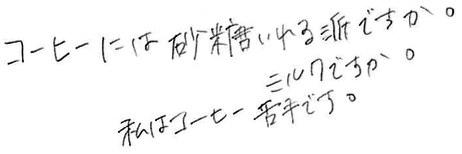 コーヒーには砂糖いれる派ですか。
ミルクですか。
私はコーヒー苦手です。